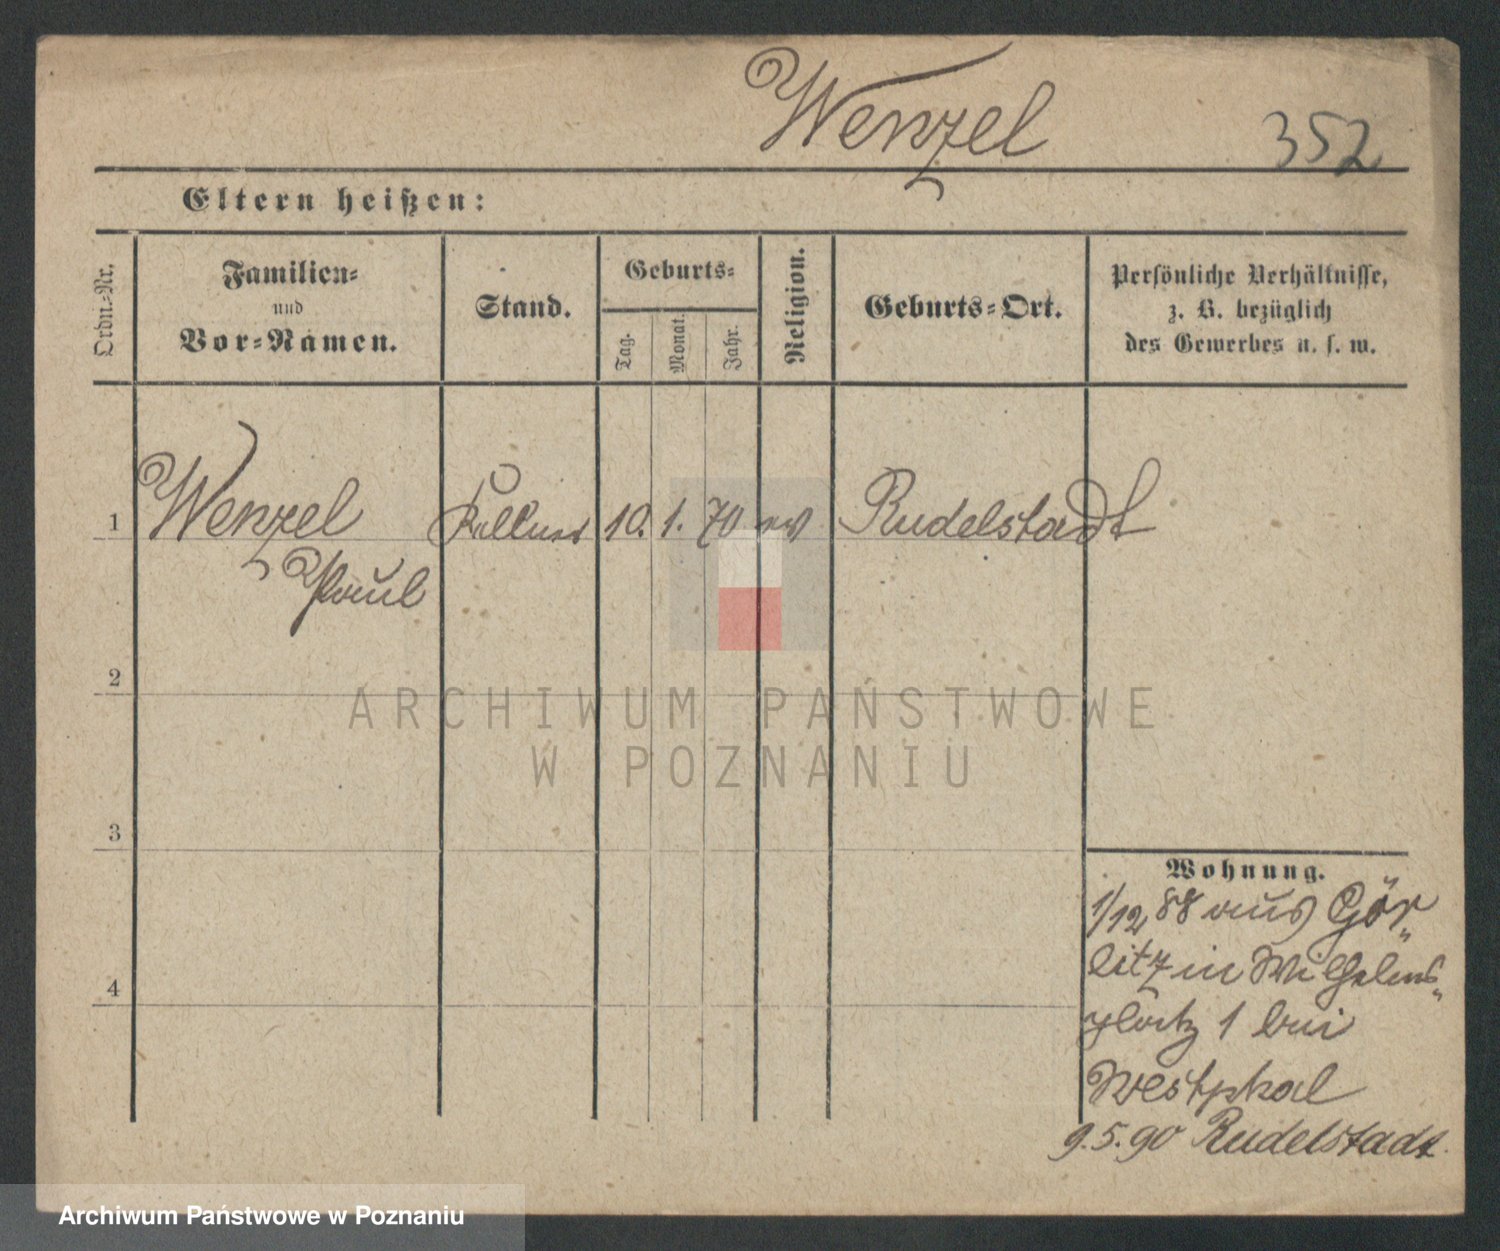 Wenzel
352
Eltern heißen:
Ordn.-Nr.
Familien-
und
Vor-Namen.
Stand.
Geburts-
Tag.
Monat.
Jahr.
Religion.
Geburts-Ort.
Persönliche Verhältnisse,
z. B. bezüglich
des Gewerbes u. s. w.
1 Wenzel Kellner 10. 1. 70 ev Rudelstadt
Paul
2
3
4
Wohnung.
1/12 88 aus Gör„
litz in Wilhelms„
platz 1 bei
Westphal
9.5.90 Rudelstadt.
ARCHIWUM PAŃSTWOWE
W POZNANIU
Archiwum Państwowe w Poznaniu